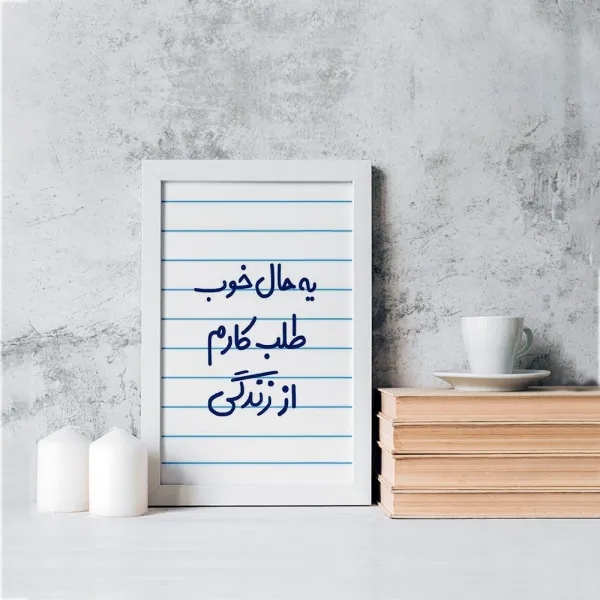 یه حال خوب
طلب کارم
از زندگی